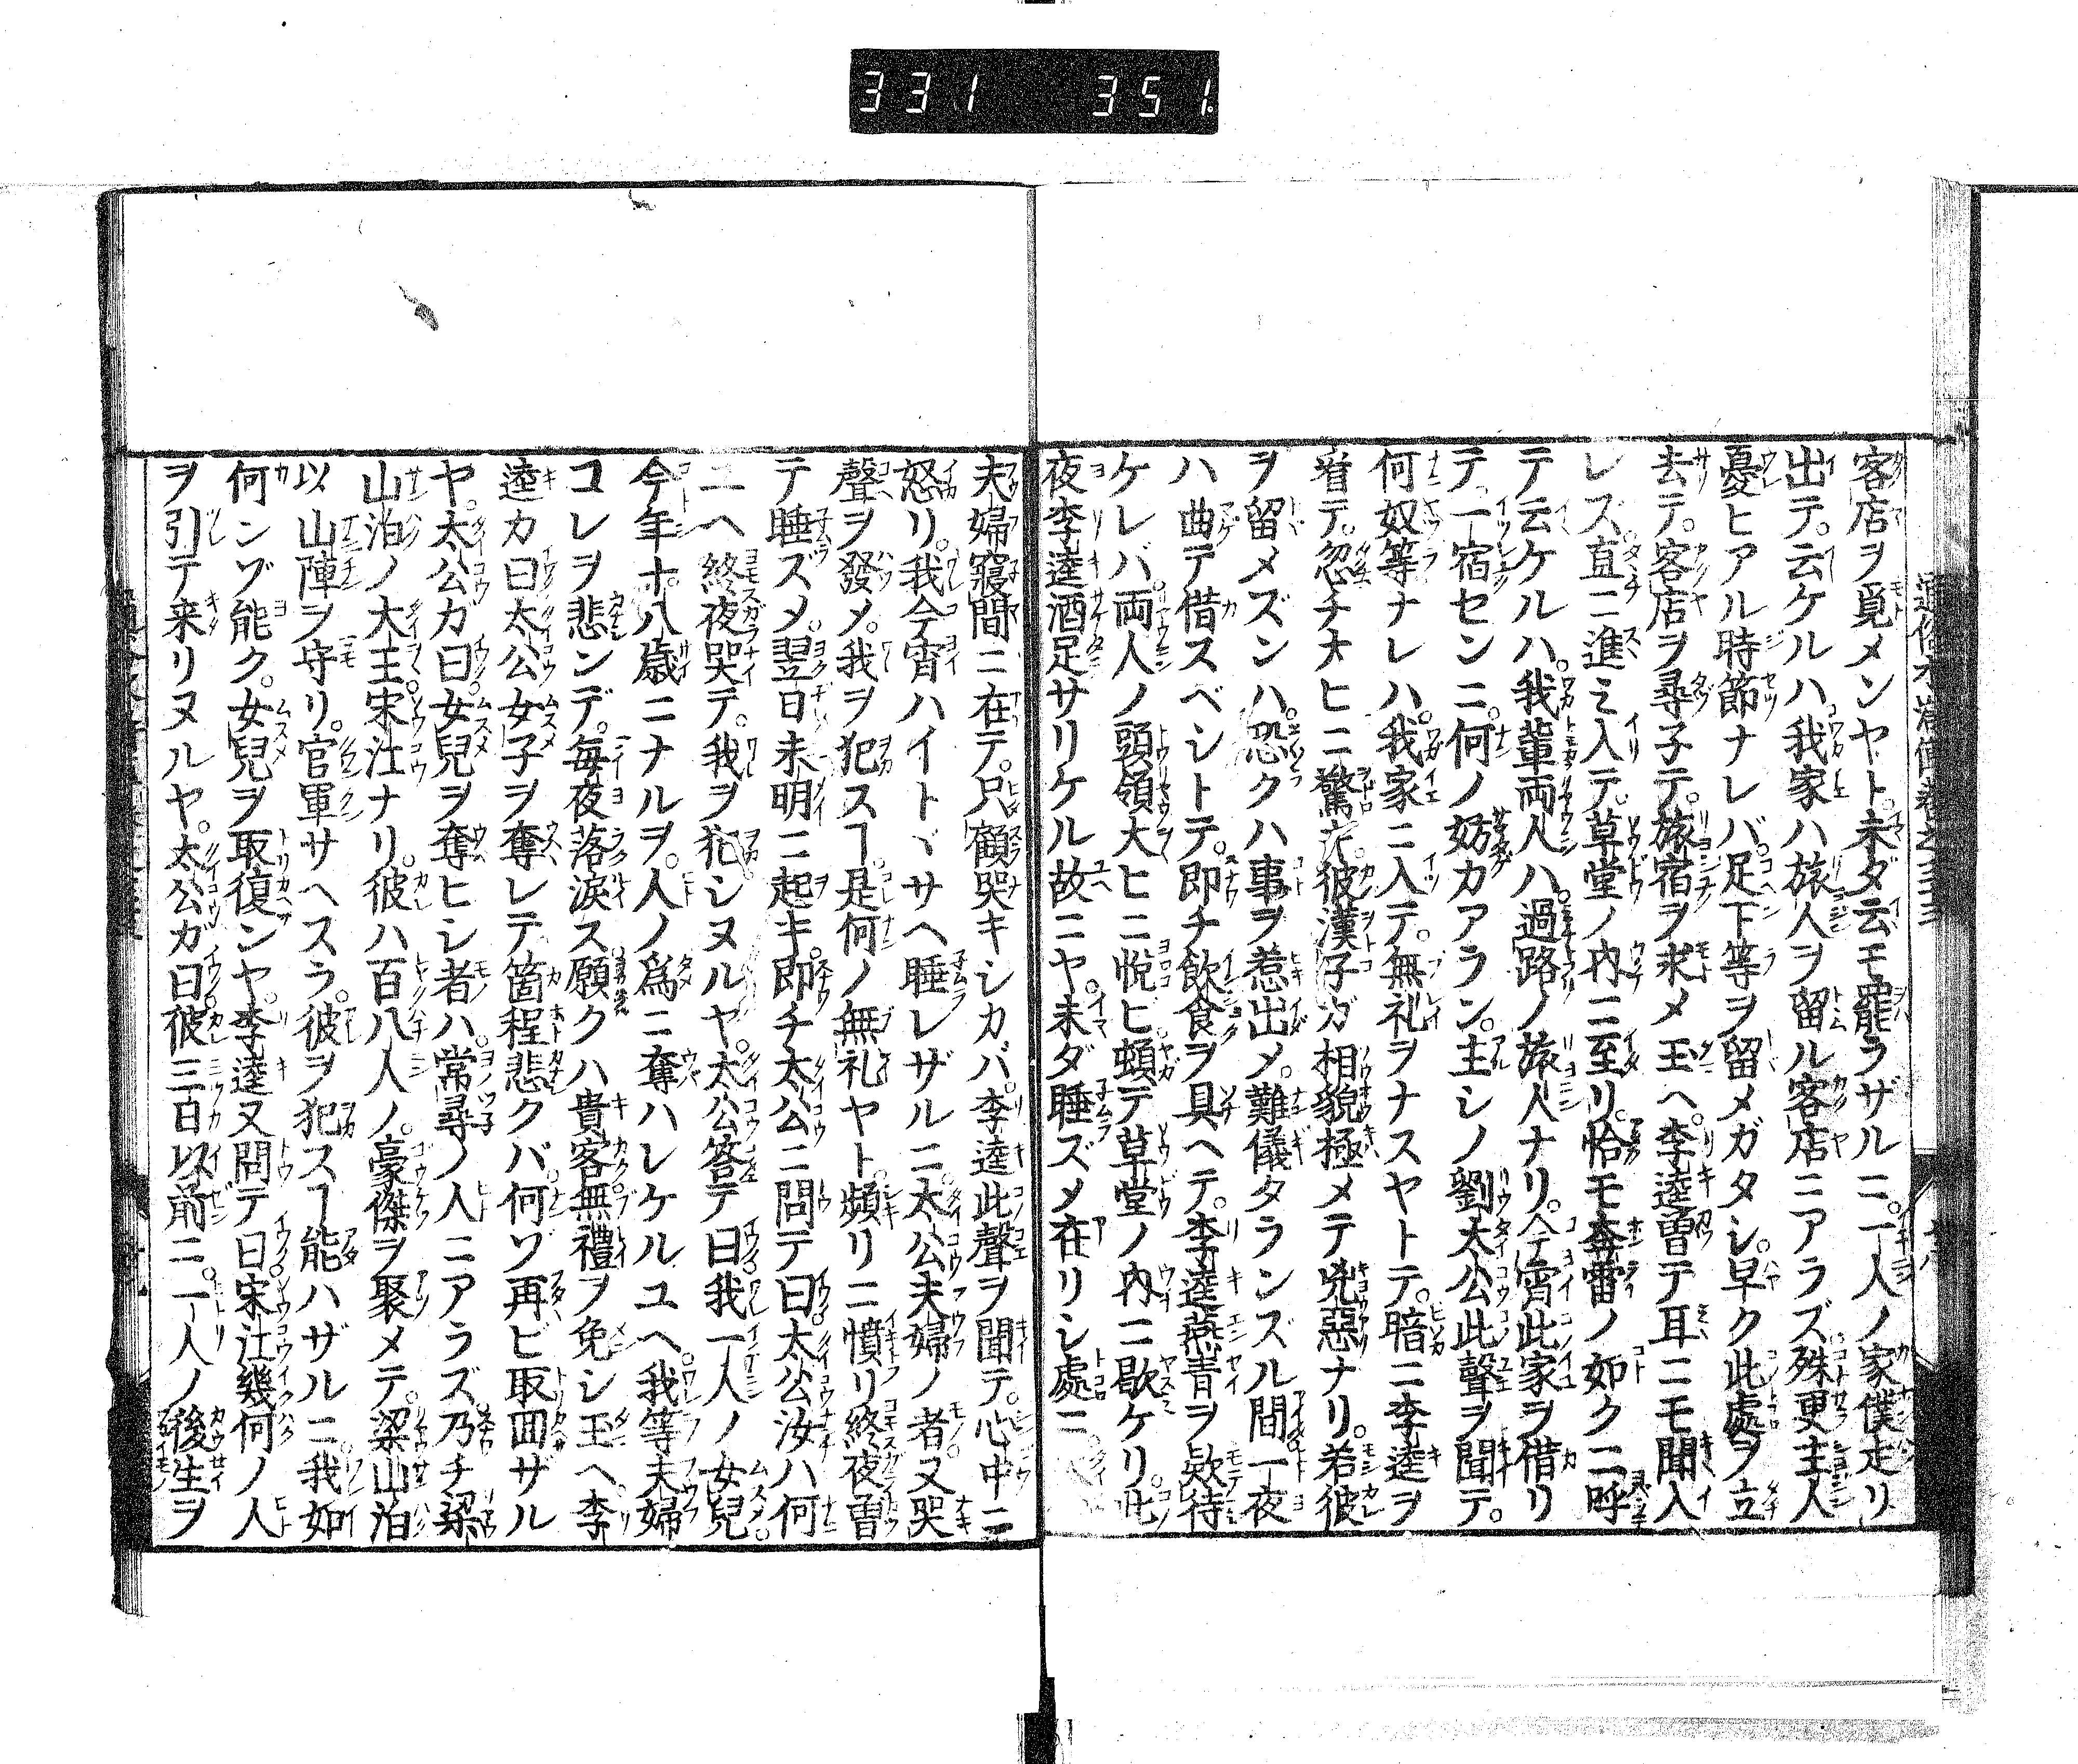 331 351
客店ヲ覓メンヤト未ダ云モ罷ラザルニ一人ノ家僕走リ
出テ云ケルハ我家ハ旅人ヲ留ル客店ニアラズ殊更主人
憂ヒアル時節ナレバ足下等ヲ留メガタシ早ク此處ヲ立
去テ客店ヲ尋子テ旅宿ヲ求メ玉ヘ李逵曽テ耳ニモ聞入
レズ直ニ進ミ入テ草堂ノ内ニ至リ恰モ奔雷ノ如クニ呼
テ云ケルハ我輩両人ハ過路ノ旅人ナリ今宵此家ヲ借リ
テ一宿センニ何ノ妨カアラン主シノ劉太公此聲ヲ聞テ
何奴等ナレハ我家ニ入テ無礼ヲナスヤトテ暗ニ李逵ヲ
看テ忽チ大ヒニ驚キ彼漢子ガ相貌極メテ兇惡ナリ若彼
ヲ留メズンハ恐クハ事ヲ惹出メ難儀タランズル間一夜
ハ曲テ借スベシトテ即チ飲食ヲ具ヘテ李逵燕青ヲ欵待
ケレバ両人ノ頭領大ヒニ悦ビ頓テ草堂ノ内ニ歇ケリ此
夜李逵酒足サリケル故ニヤ未ダ睡ズメ在リシ處ニ
夫婦寢間ニ在テ只顧哭キシカバ李逵此聲ヲ聞テ心中ニ
怒リ我今宵ハイトヾサヘ睡レザルニ太公夫婦ノ者又哭
聲ヲ發メ我ヲ犯スヿ是何ノ無礼ヤト頻リニ憤リ終夜曽
テ睡ズメ翌日未明ニ起キ即チ太公ニ問テ曰太公汝ハ何
ユヘ終夜哭テ我ヲ犯シヌルヤ太公答テ曰我一人ノ女兒
今年十八歳ニナルヲ人ノ爲ニ奪ハレケルユヘ我等夫婦
コレヲ悲ンデ毎夜落涙ス願クハ貴客無禮ヲ免シ玉ヘ李
逵カ曰太公女子ヲ奪レテ箇程悲クバ何ゾ再ビ取囬ザル
ヤ太公カ曰女兒ヲ奪ヒシ者ハ常尋ノ人ニアラズ乃チ梁
山泊ノ大主宋江ナリ彼ハ百八人ノ豪傑ヲ聚メテ梁山泊
以山陣ヲ守リ官軍サヘスラ彼ヲ犯スヿ能ハザルニ我如
何ンゾ能ク女兒ヲ取復ンヤ李逵又問テ曰宋江幾何ノ人
ヲ引テ来リヌルヤ太公ガ曰彼三日以前ニ一人ノ後生ヲ